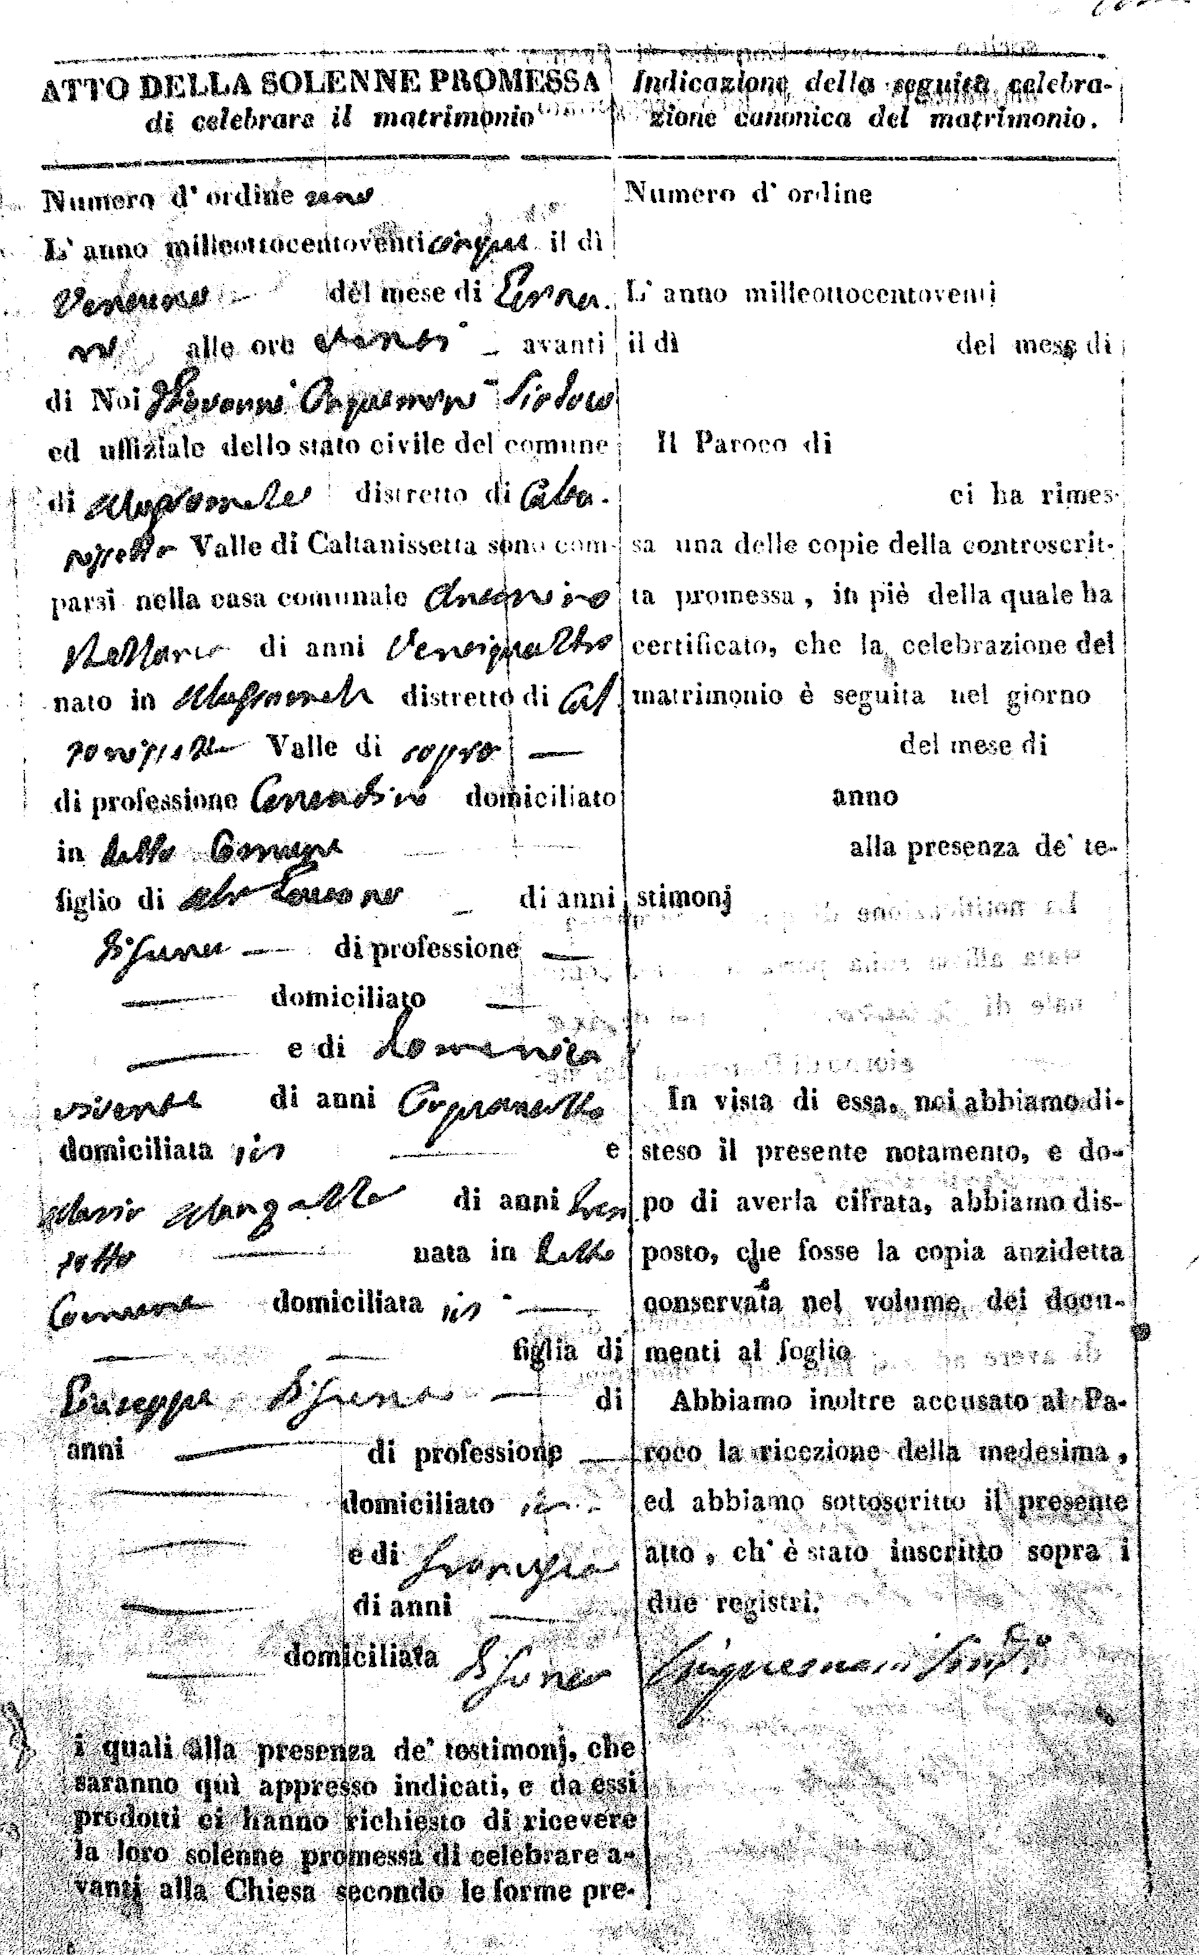 ATTO DELLA SOLENNE PROMESSA
di celebrare il matrimonio
Numero d' ordine uno
L' anno milleottocentoventicinque il dì
Ventuno del mese di Genna.
ro alle ore venti avanti
di Noi Giovanni Cinquemani Sindaco
ed uffiziale dello stato civile del comune
di Mussomeli distretto di Calta.
nissetta Valle di Caltanissetta sono com-
parsi nella casa comunale
di anni Ventiquattro
nato in Mussomeli distretto di Cal
tanissetta Valle di sopra —
di professione domiciliato
in detto Comune
figlio di di anni
di professione —
— domiciliato —
— e di Domenica
vivente di anni
domiciliata ivi — e
Maria di anni tren
totto — nata in detto
Comune domiciliata ivi —
— — figlia di
Giuseppe — di
anni — di professione —
— domiciliato ivi
— e di
— di anni —
— domiciliata
i quali alla presenza de' testimonj, che
saranno quì appresso indicati, e da essi
prodotti ci hanno richiesto di ricevere
la loro solenne promessa di celebrare a-
vanti alla Chiesa secondo le forme pre-
Indicazione della seguita celebra-
zione canonica del matrimonio.
Numero d' ordine
L' anno milleottocentoventi
il dì del mese di
Il Paroco di
ci ha rimes-
sa una delle copie della controscrit-
ta promessa, in piè della quale ha
certificato, che la celebrazione del
matrimonio è seguita nel giorno
del mese di
anno
alla presenza de' te-
stimonj
In vista di essa, noi abbiamo di-
steso il presente notamento, e do-
po di averla cifrata, abbiamo dis-
posto, che fosse la copia anzidetta
conservata nel volume dei docu-
menti al foglio
Abbiamo inoltre accusato al Pa-
roco la ricezione della medesima,
ed abbiamo sottoscritto il presente
atto, ch' è stato inscritto sopra i
due registri.
Cinquemani Sind.º